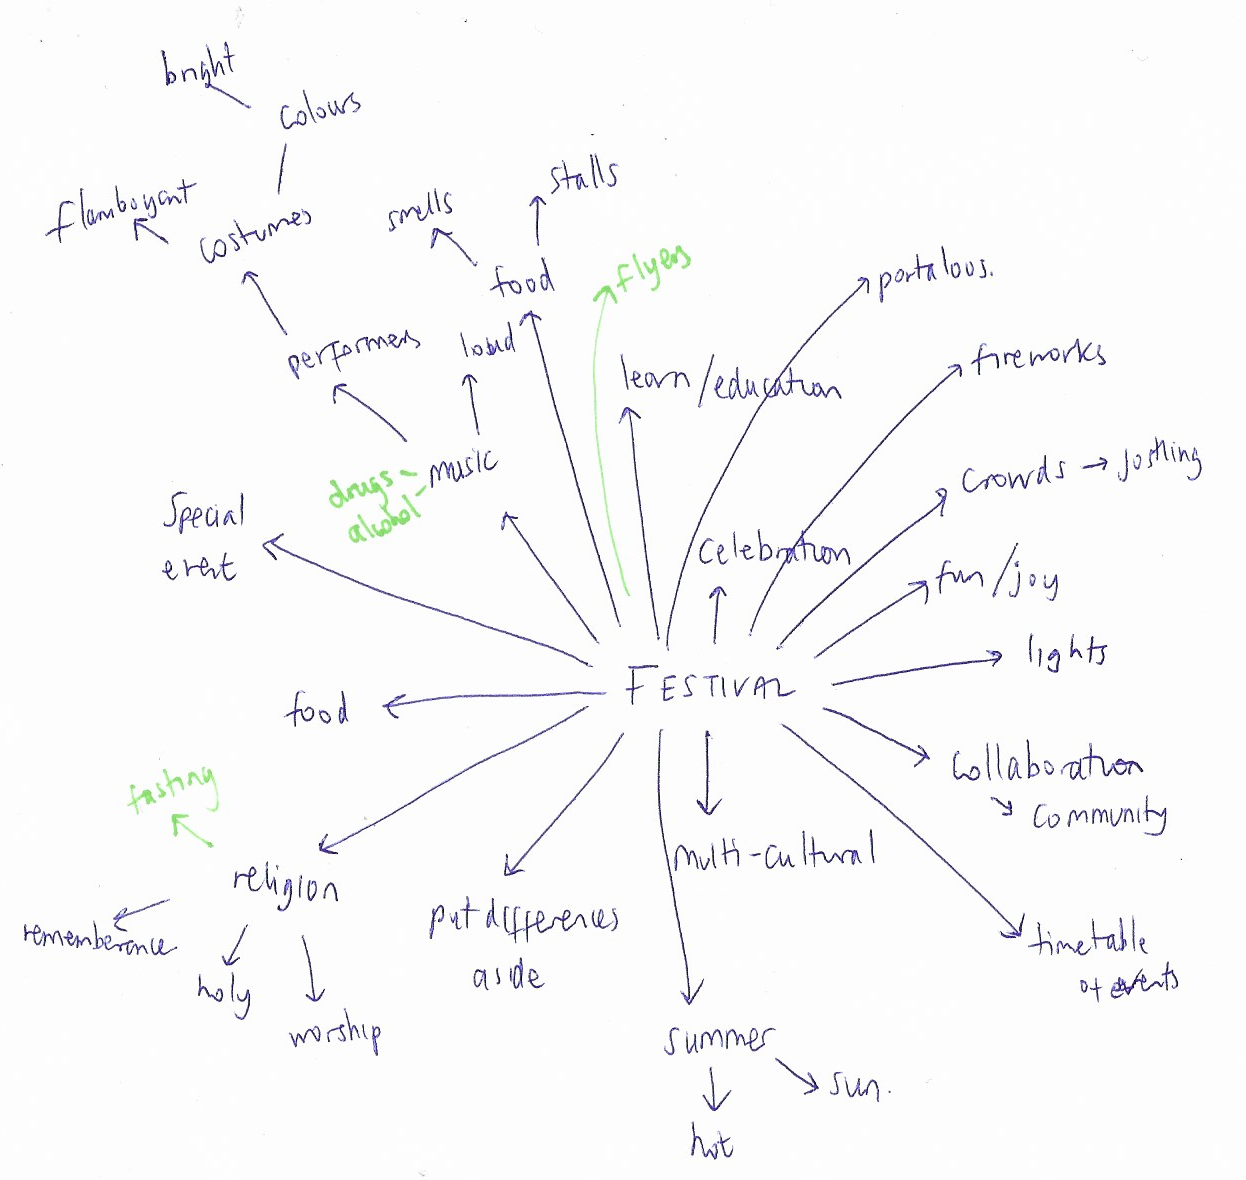 bright
colours
flamboyant
costumes
smells
stalls
food
flyers
portalous.
performers
loud
learn/education
fireworks
drugs
alcohol
music
crowds → jostling
Special
event
celebration
fun/joy
lights
FESTIVAL
food
collaboration
community
fasting
religion
multi-cultural
put differences
aside
rememberance
holy
worship
timetable
of events
summer
sun.
hot